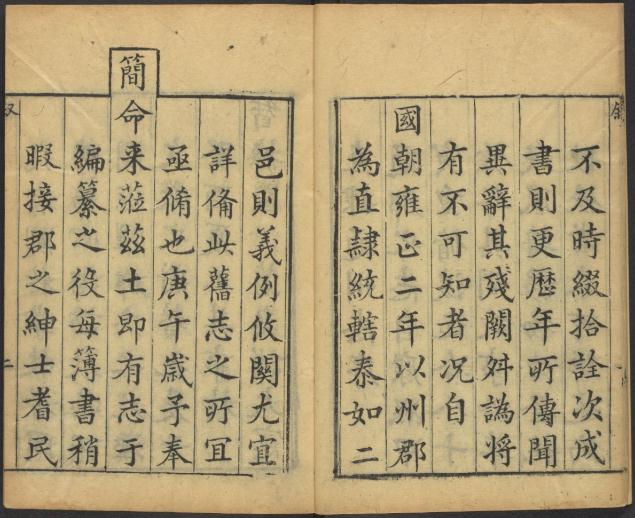 不及時綴拾詮次成
書則更歴年所傳聞
異辭其殘闕舛譌將
有不可知者况自
國朝雍正二年以州郡
為直隸統轄泰如二
邑則義例攸關尤宜
詳俻此舊志之所宜
亟脩也庚午嵗予奉
簡命来蒞兹土即有志于
編纂之役每簿書稍
暇接郡之紳士耆民
叙
二